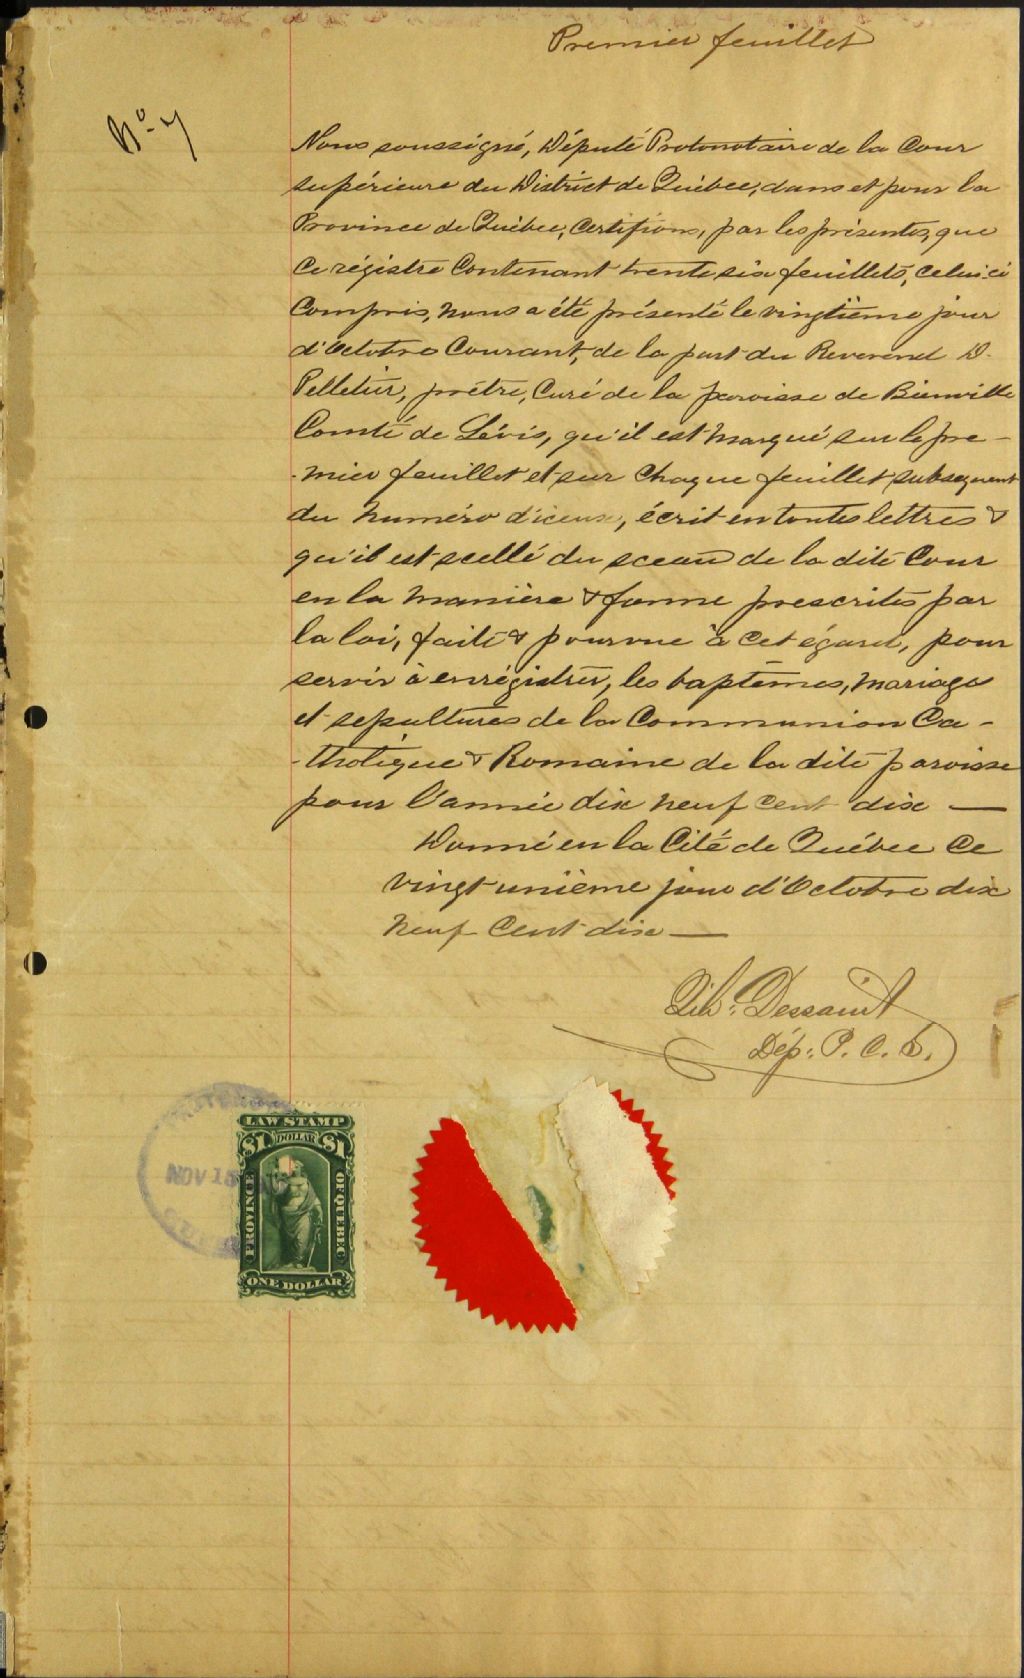 Premier feuillet
No. 7
Nous soussigné, Député Protonotaire de la Cour
supérieure du District de Québec, dans et pour la
Province de Québec, Certifions, par les présentes, que
Ce régistre Contenant trente six feuillets, celui-ci
Compris, nous a été présenté le vingtième jour
d'Octobre Courant, de la part du Reverend D.
Pelletier, prêtre, Curé de la paroisse de Bienville
Comté de Lévis, qu'il est marqué sur le pre-
-mier feuillet et sur Chaque feuillet subsequent
du numéro d'iceux, écrit en toutes lettres &
qu'il est scellé du sceau de la dite Cour
en la manière & forme prescrites par
la loi, faite & pourvue à cet égard, pour
servir à enrégistrer, les baptêmes, mariages
et sepultures de la Communion Ca-
-tholique & Romaine de la dite paroisse
pour l'année dix neuf cent dix —
Donné en la Cité de Québec Ce
vingt unième jour d'Octobre dix
neuf Cent dix —
Dessaint
Dép. P. C. S.
LAW STAMP
$1 DOLLAR $1
PROVINCE OF QUEBEC
ONE DOLLAR
NOV 15